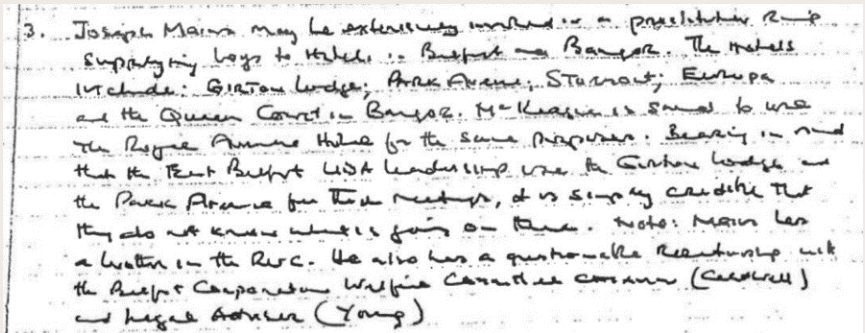 3. Joseph Mains may be extensively involved in a prostitution ring
supplying boys to Hotels in Belfast and Bangor. The Hotels
include: GIRTON Lodge; PARK Avenue; STORMONT; EUROPA
and the Queen's Court in Bangor. McKeague is said to use
the Royal Avenue Hotel for the same purposes. Bearing in mind
that the East Belfast UDA leadership use the Girton Lodge and
the Park Avenue for their meetings, it is simply credible that
they do not know what is going on there. Note: Mains has
a brother in the RUC. He also has a questionable relationship with
the Belfast Corporation Welfare Committee (Caldwell)
and Legal Adviser (Young)